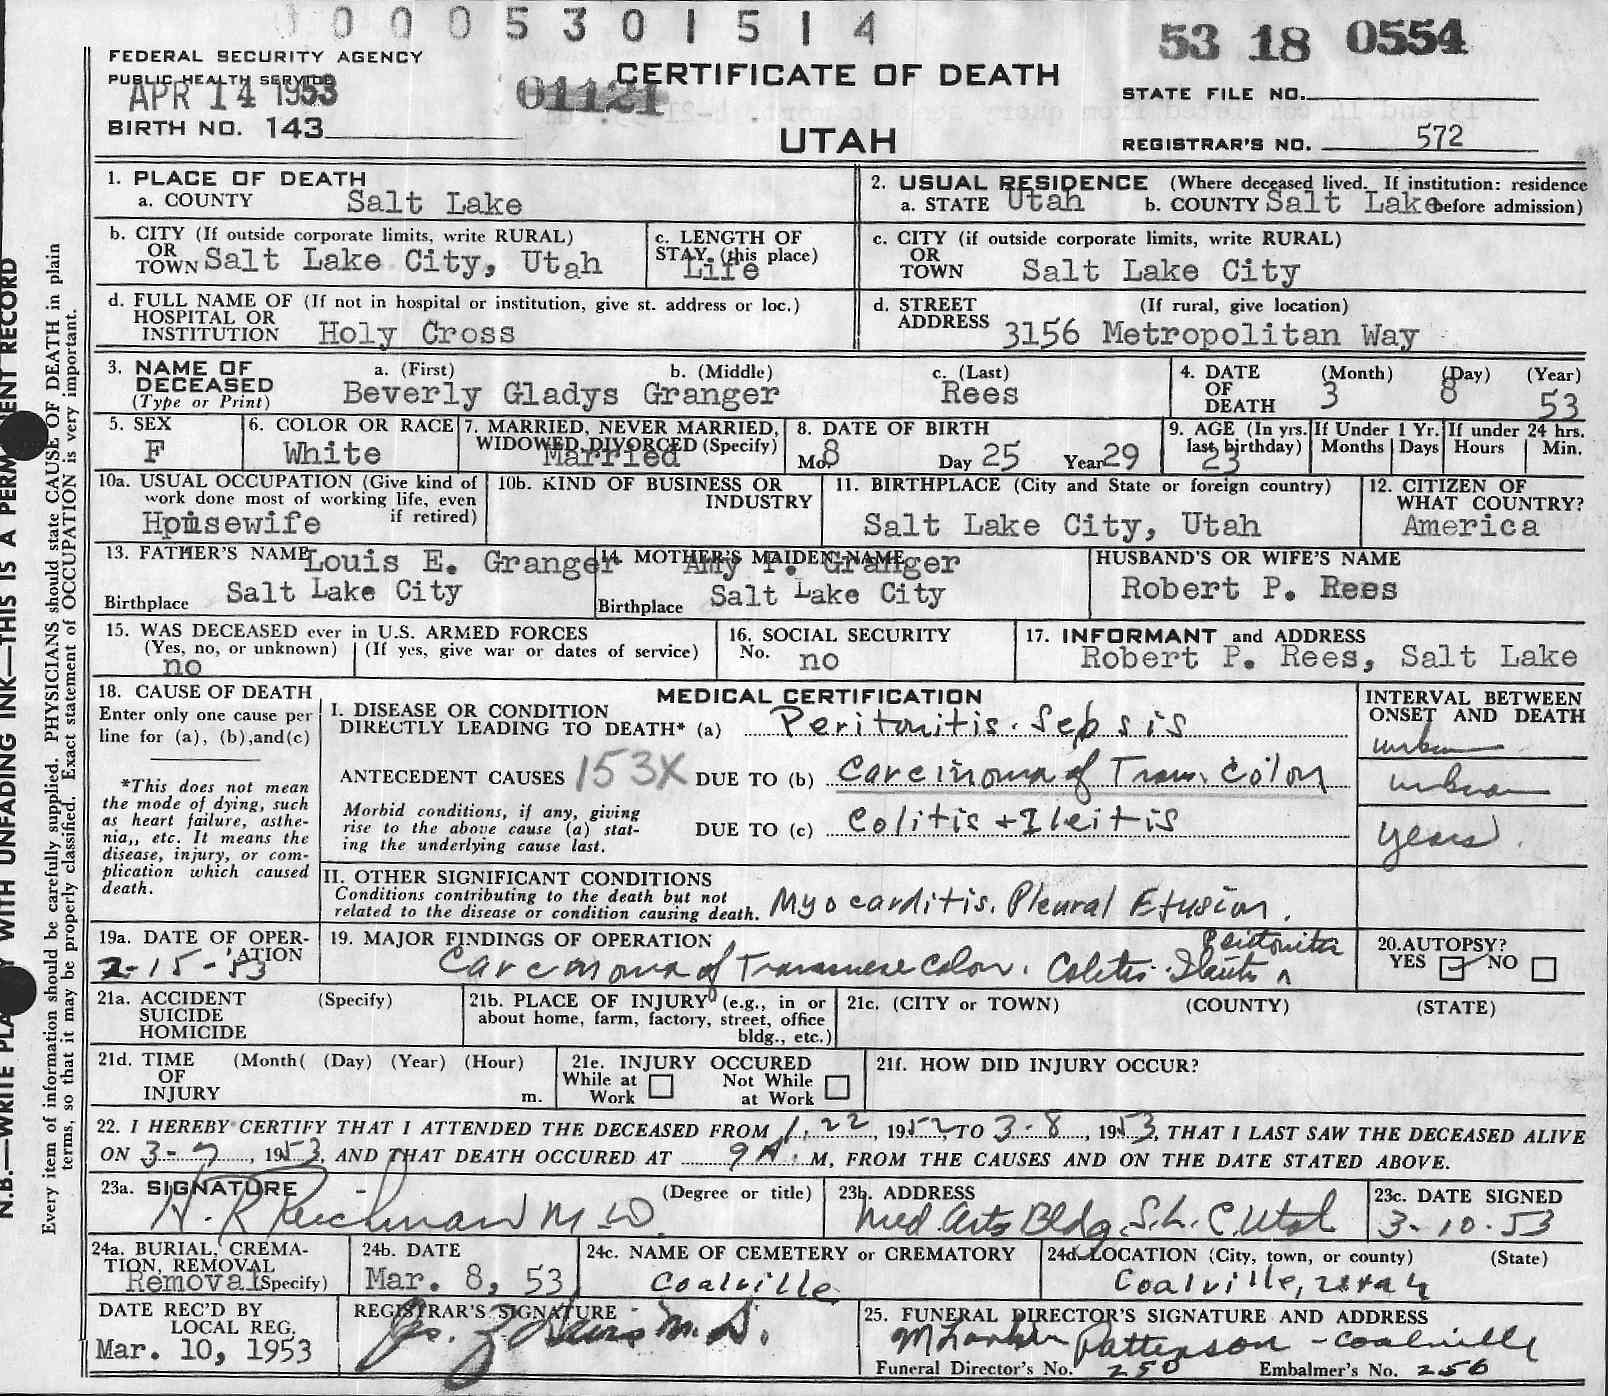 0 0 0 0 5 3 0 1 5 1 4
53 18 0554
FEDERAL SECURITY AGENCY
PUBLIC HEALTH SERVICE
APR 14 1953
01121
CERTIFICATE OF DEATH
STATE FILE NO.
BIRTH NO. 143
UTAH
REGISTRAR'S NO. 572
1. PLACE OF DEATH
a. COUNTY Salt Lake
2. USUAL RESIDENCE (Where deceased lived. If institution: residence before admission)
a. STATE Utah b. COUNTY Salt Lake
b. CITY (If outside corporate limits, write RURAL)
OR TOWN Salt Lake City, Utah
c. LENGTH OF STAY (this place)
Life
c. CITY (if outside corporate limits, write RURAL)
OR TOWN Salt Lake City
d. FULL NAME OF (If not in hospital or institution, give st. address or loc.)
HOSPITAL OR
INSTITUTION Holy Cross
d. STREET (If rural, give location)
ADDRESS 3156 Metropolitan Way
3. NAME OF DECEASED
(Type or Print)
a. (First) b. (Middle) c. (Last)
Beverly Gladys Granger Rees
4. DATE OF DEATH
(Month) (Day) (Year)
3 8 53
5. SEX
F
6. COLOR OR RACE
White
7. MARRIED, NEVER MARRIED,
WIDOWED, DIVORCED (Specify)
Married
8. DATE OF BIRTH
Mo. 8 Day 25 Year 29
9. AGE (In yrs. last birthday)
23
If Under 1 Yr.
Months Days
If under 24 hrs.
Hours Min.
10a. USUAL OCCUPATION (Give kind of
work done most of working life, even
if retired)
Housewife
10b. KIND OF BUSINESS OR
INDUSTRY
11. BIRTHPLACE (City and State or foreign country)
Salt Lake City, Utah
12. CITIZEN OF
WHAT COUNTRY?
America
13. FATHER'S NAME Louis E. Granger
Birthplace Salt Lake City
14. MOTHER'S MAIDEN NAME
Amy P. Granger
Birthplace Salt Lake City
HUSBAND'S OR WIFE'S NAME
Robert P. Rees
15. WAS DECEASED ever in U.S. ARMED FORCES
(Yes, no, or unknown) (If yes, give war or dates of service)
no
16. SOCIAL SECURITY
No. no
17. INFORMANT and ADDRESS
Robert P. Rees, Salt Lake
18. CAUSE OF DEATH
Enter only one cause per
line for (a), (b),and(c)
*This does not mean
the mode of dying, such
as heart failure, asthe-
nia,, etc. It means the
disease, injury, or com-
plication which caused
death.
MEDICAL CERTIFICATION
I. DISEASE OR CONDITION
DIRECTLY LEADING TO DEATH* (a) Peritonitis. Sepsis
ANTECEDENT CAUSES 153X DUE TO (b) Carcinoma of Trans. Colon
Morbid conditions, if any, giving
rise to the above cause (a) stat-
ing the underlying cause last.
DUE TO (c) Colitis + Ileitis
INTERVAL BETWEEN
ONSET AND DEATH
years.
II. OTHER SIGNIFICANT CONDITIONS
Conditions contributing to the death but not
related to the disease or condition causing death. Myocarditis. Pleural Efusion.
19a. DATE OF OPER-
ATION
2-15-53
19. MAJOR FINDINGS OF OPERATION
Carcinoma of Transverse Colon. Colitis. Ileitis ^ Peritonitis
20.AUTOPSY?
YES ✓ NO
21a. ACCIDENT (Specify)
SUICIDE
HOMICIDE
21b. PLACE OF INJURY (e.g., in or
about home, farm, factory, street, office
bldg., etc.)
21c. (CITY or TOWN) (COUNTY) (STATE)
21d. TIME (Month( (Day) (Year) (Hour)
OF
INJURY m.
21e. INJURY OCCURED
While at Work Not While at Work
21f. HOW DID INJURY OCCUR?
22. I HEREBY CERTIFY THAT I ATTENDED THE DECEASED FROM 1. 22, 1952, TO 3-8, 1953, THAT I LAST SAW THE DECEASED ALIVE
ON 3-7, 1953, AND THAT DEATH OCCURED AT 9A.M, FROM THE CAUSES AND ON THE DATE STATED ABOVE.
23a. SIGNATURE (Degree or title)
H.R. Reichman M.D.
23b. ADDRESS
Med Arts Bldg. S.L.C. Utah
23c. DATE SIGNED
3-10-53
24a. BURIAL, CREMA-
TION, REMOVAL
Removal (Specify)
24b. DATE
Mar. 8, 53
24c. NAME OF CEMETERY or CREMATORY
Coalville
24d. LOCATION (City, town, or county) (State)
Coalville, Utah
DATE REC'D BY
LOCAL REG.
Mar. 10, 1953
REGISTRAR'S SIGNATURE
M.D.
25. FUNERAL DIRECTOR'S SIGNATURE AND ADDRESS
Patterson - Coalville
Funeral Director's No. 250 Embalmer's No. 256
N.B.—WRITE PLAINLY WITH UNFADING INK—THIS IS A PERMANENT RECORD
Every item of information should be carefully supplied. PHYSICIANS should state CAUSE OF DEATH in plain
terms, so that it may be properly classified. Exact statement of OCCUPATION is very important.